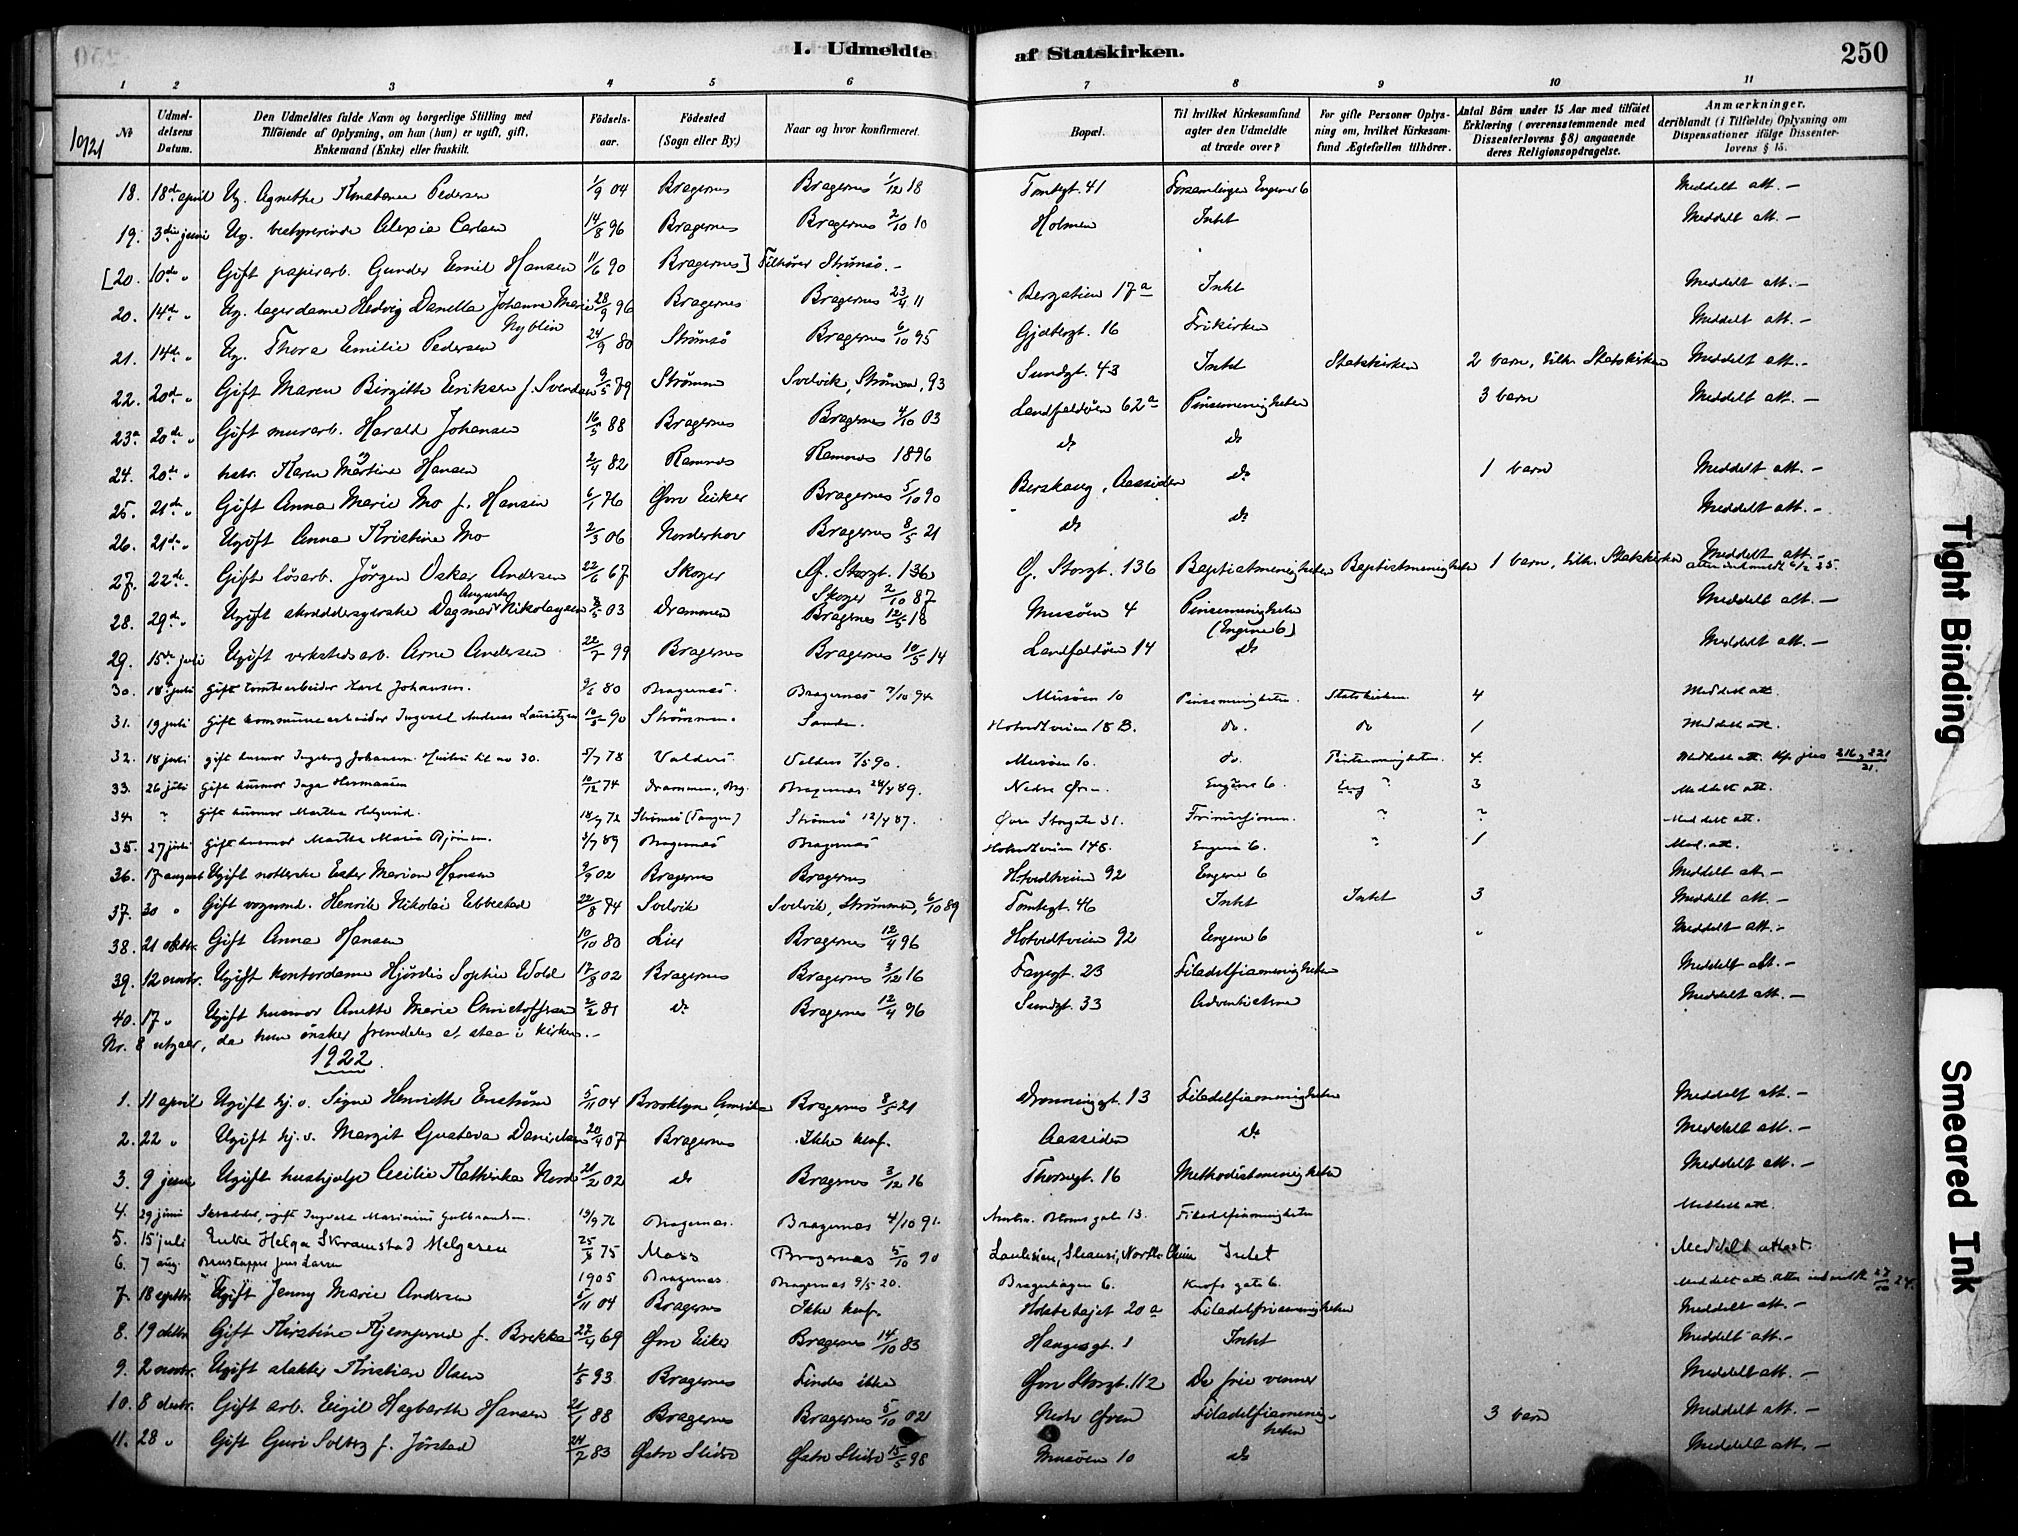 I. Udmeldte af Statskirken. 250
1 2 3 4 5 6 7 8 9 10 11
No. Udmeldelsens Datum. Den Udmeldtes fulde Navn og borgerlige Stilling med Tilføiende af Oplysning, om han (hun) er ugift, gift, Enkemand (Enke) eller fraskilt. Fødselsaar. Fødested (Sogn eller By.) Naar og hvor konfirmeret. Bopæl. Til hvilket Kirkesamfund agter den Udmeldte at træde over? For gifte Personer Oplysning om, hvilket Kirkesamfund Ægtefællen tilhører. Antal Børn under 15 Aar med tilføiet Erklæring (overensstemmende med Dissenterlovens § 8) angaaende deres Religionsopdragelse. Anmærkninger, deriblandt (i Tilfælde) Oplysning om Dispensationer ifølge Dissenterlovens § 15.
18. 18de april Ug. Agnethe Konstanse Pedersen 1/9 04 Bragernes Bragernes 1/12 18 Tomtegt. 41 Forsamlingen Engene 6 Meddelt att. –
19. 3die juni Ug. bestyrerinde Alexia Carlsen 14/8 96 Bragernes Bragernes 2/10 10 Holmen Intet Meddelt att. –
[20. 10de " Gift papirarb. Gunder Emil Hansen 11/6 90 Bragernes] Tilhører Strømsø. –
20. 14de " Ug. lagerdame Hedvig Danella Johanne Marie Nyblin 28/9 96 Bragernes Bragernes 23/4 11 Bergstien 17a Intet Meddelt att. –
21. 14de " Ug. Thora Emilie Pedersen 24/9 80 Strømsø Bragernes 6/10 95 Gjetergt. 16 Frikirken Meddelt att. –
22. 20de " Gift Maren Birgitte Eriksen f. Svendsen 9/5 79 Strømm Svelvik, Strømm, 93 Sundgt. 43 Intet Statskirken 2 barn, tilh. Statskirken Meddelt att. –
23a 20de " Gift murarb. Harald Johansen 16/5 88 Bragernes Bragernes 4/10 03 Landfaldøen 62a Pinsemenigheten 3 barn Meddelt att. –
24. 20de " hstr. Karen Martine Hansen 2/4 82 Ramnes Ramnes 1896 do do
25. 21de " Gift Anna Marie Mo f. Hansen 6/1 76 Øvre Eiker Bragernes 5/10 90 Berskaug, Aassiden do 1 barn Meddelt att. –
26. 21de " Ugift Anna Kristine Mo 2/3 06 Norderhov Bragernes 8/5 21 do do Meddelt att. –
27. 22de " Gift løsarb. Jørgen Oskar Andersen 22/6 67 Skoger Ø. Storgt. 136 Skoger 2/10 87 Ø. Storgt. 136 Baptistmenigheten Baptistmenigheten 1 barn, tilh. Statskirken Meddelt att. –
28. 29de " Ugift skreddersyerske Dagmar Augusta Nikolaysen 8/5 03 Drammen Bragernes 12/5 18 Musøen 4 Pinsemenigheten (Engene 6) Meddelt att. –
29. 15de juli Ugift verkstedsarb. Arne Andersen 22/7 99 Bragernes Bragernes 10/5 14 Landfaldøen 14 do Meddelt att. –
30. 18 juli Gift tomtearbeider Karl Johansen. 9/6 80 Bragernes. Bragernes 7/10 94 Musøen 10 Pinsemenigheten. Statskirken. 4 Meddelt att.
31. 19 juli Gift kommunearbeider Ingvald Andreas Lauritzen 10/5 90 Strømmen. Sande. Hotvedtveien 18 B. do. do 1 Meddelt att.
32. 18 juli gift husmor Ingeborg Johansen. Hustru til no 30. 5/7 78 Valders Valders 7/5 90. Musøen 10. do. Pintsemenigheten. 4. Meddelt att.
33. 26 juli Gift husmor Inga Hermansen 10/12 74 Drammen, Brg. Bragernes 28/4 89. Nedre Øren. Engene 6. Eng " 3 Meddelt att.
34. " Gift husmor Martha 14/9 72 Strømsø (Tangen) Strømsø 12/4 87. Øvre Storgate 31. Frimisjonen. " " Meddelt att.
35. 27 juli Gift husmor Martha Maria Bjørnsen. 3/7 89 Bragernes Bragernes Hotvedtveien 148. Engene 6. " 1 Med. att.
36. 17 august Ugift Ester Marion Hansen 9/9 02 Bragernes Bragernes Hotvedtveien 92 Engene 6 Meddelt att. –
37. 30 " Gift vognmd. Henrik Nikolai Ebbestad 22/8 74 Svelvik Svelvik, Strømmen, 6/10 89 Tomtegt. 46 Intet Intet 3 Meddelt att. –
38. 21 oktbr. Gift Anna Hansen 10/10 80 Lier Bragernes 12/4 96 Hotvedtveien 92 Engene 6 " Meddelt att. –
39. 12 novbr. Ugift kontordame Hjørdis Sophie Wold 17/8 02 Bragernes Bragernes 3/12 16 Fayegt. 23 Filadelfiamenigheten Meddelt att. –
40. 17 " Ugift husmor Anette Marie Christoffersen 2/2 81 do Bragernes 12/4 96 Sundgt. 33 Adventisterne Meddelt att. –
Nr. 8 utgaar, da hun ønsker fremdeles at staa i kirken. –
1922.
1. 11 april Ugift hj. v. Signe Henriette Enstrøm 5/11 04 Brooklyn Amerika Bragernes 8/5 21 Dronninggt. 13 Filadelfiamenigheten Meddelt att. –
2. 22 " Ugift hj. v. Margit Gustava Danielsen 20/4 07 Bragernes Ikke konf. Aassiden do Meddelt att. –
3. 9 juni Ugift hushjelp Cecilie Kathinka Nord 21/2 02 do Bragernes 3/12 16 Thornegt. 16 Methodistmenigheten Meddelt att. –
4. 29 juni Skredder, ugift Ingvald Marinius Gulbrandsen. 19/9 76 Bragernes. Bragernes 4/10 91. Filadelfiamenigheten Meddelt att.
5. 15 juli Enke Helga Skramstad Melgeren 25/8 75 Moss Bragernes 5/10 90 Intet Meddelt attest.
6. 7 aug. Jens Larsen 1905 Bragernes. Bragernes 9/5 20. Bragerhagen 6. Knofs gate 6. Meddelt att.
7. 18 septbr. Ugift Jenny Marie Andersen 6/11 04 Bragernes Ikke konf. Hotvethøjet 20a Filadelfiamenigheten Meddelt att. –
8. 19 oktbr. Gift Kirstine Kjemperud f. Brekke 27/4 69 Øvre Eiker Bragernes 14/10 83 Haugesgt. 1 Intet Meddelt att. –
9. 2 novbr. Ugift slakter Kristian Olsen 1/5 93 Bragernes Findes ikke Øvre Storgt. 112 De frie venner Meddelt att. –
10. 8 desbr. Gift arb. Eigil Hagbarth Hansen 21/1 88 Bragernes Bragernes 5/10 02 Nedre Øren Filadelfiamenigheten 3 barn Meddelt att. –
11. 28 " Gift Guri Solberg f. Jørstad 24/7 83 Østre Slidre Østre Slidre 15/5 98 Musøen 10 do Meddelt att. –
Tight Binding
Smeared Ink